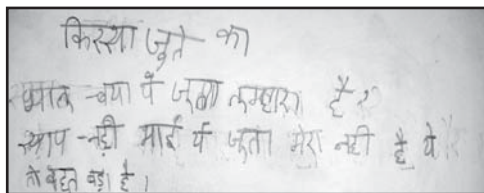 किस्सा जुते का
श्याल - क्या ये जुता तुम्हारा है ?
स्याप - नही भाई ये जुता मेरा नही है ये
तो बहुत बड़ा है ।